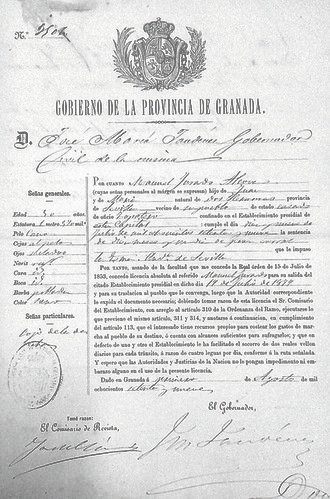 N.º
GOBIERNO DE LA PROVINCIA DE GRANADA.
D. José María Jaudenes Gobernador
Civil de la misma
Señas generales.
Edad
Estatura
Pelo cano
Ojos
Nariz
Cara
Boca
Barba poblada
Color sano
Señas particulares.
POR CUANTO Manuel Jurado
(cuyas señas personales al márgen se expresan) hijo de Juan
y de María natural de Dos Hermanas
provincia de Sevilla vecino de de estado casado
de oficio zapatero confinado en el Establecimiento presidial de
esta Capital cumplió en de
Julio de mil ochocientos setenta y nueve la sentencia
de diez meses y un día de que le impuso
la Excma. Aud.ª de Sevilla
POR TANTO, usando de la facultad que me concede la Real órden de 15 de Julio de
1853, concedo licencia absoluta al referido Manuel Jurado para su salida del
citado Establecimiento presidial en dia 18 de Julio de 1879
para el pueblo que le convenga, luego que la Autoridad correspondiente
le expida el documento necesario; debiendo tomar razon de esta licencia el Sr. Comisario
del Establecimiento, con arreglo al artículo 310 de la Ordenanza del Ramo, ejecutarse
lo que previenen los artículos 311 y 314, y anotarse á continuacion, en cumplimiento
del artículo 113, que el interesado tiene recursos propios para costear los gastos de marcha
al pueblo de su destino, ó cuenta con alcances suficientes para sufragarlos; y que en
defecto de uno y otro el Establecimiento le ha facilitado el socorro de dos reales vellon
diarios para cada tránsito, á razon de cuatro leguas por dia, conforme á la ruta señalada.
Y espero que las Autoridades y Justicia de la Nacion no le pongan impedimento ni
embarazo alguno en el uso de la presente licencia.
Dado en Granada á primero de Agosto de mil
ochocientos setenta y nueve
El Gobernador,
Tomé razon:
El Comisario de Revista,